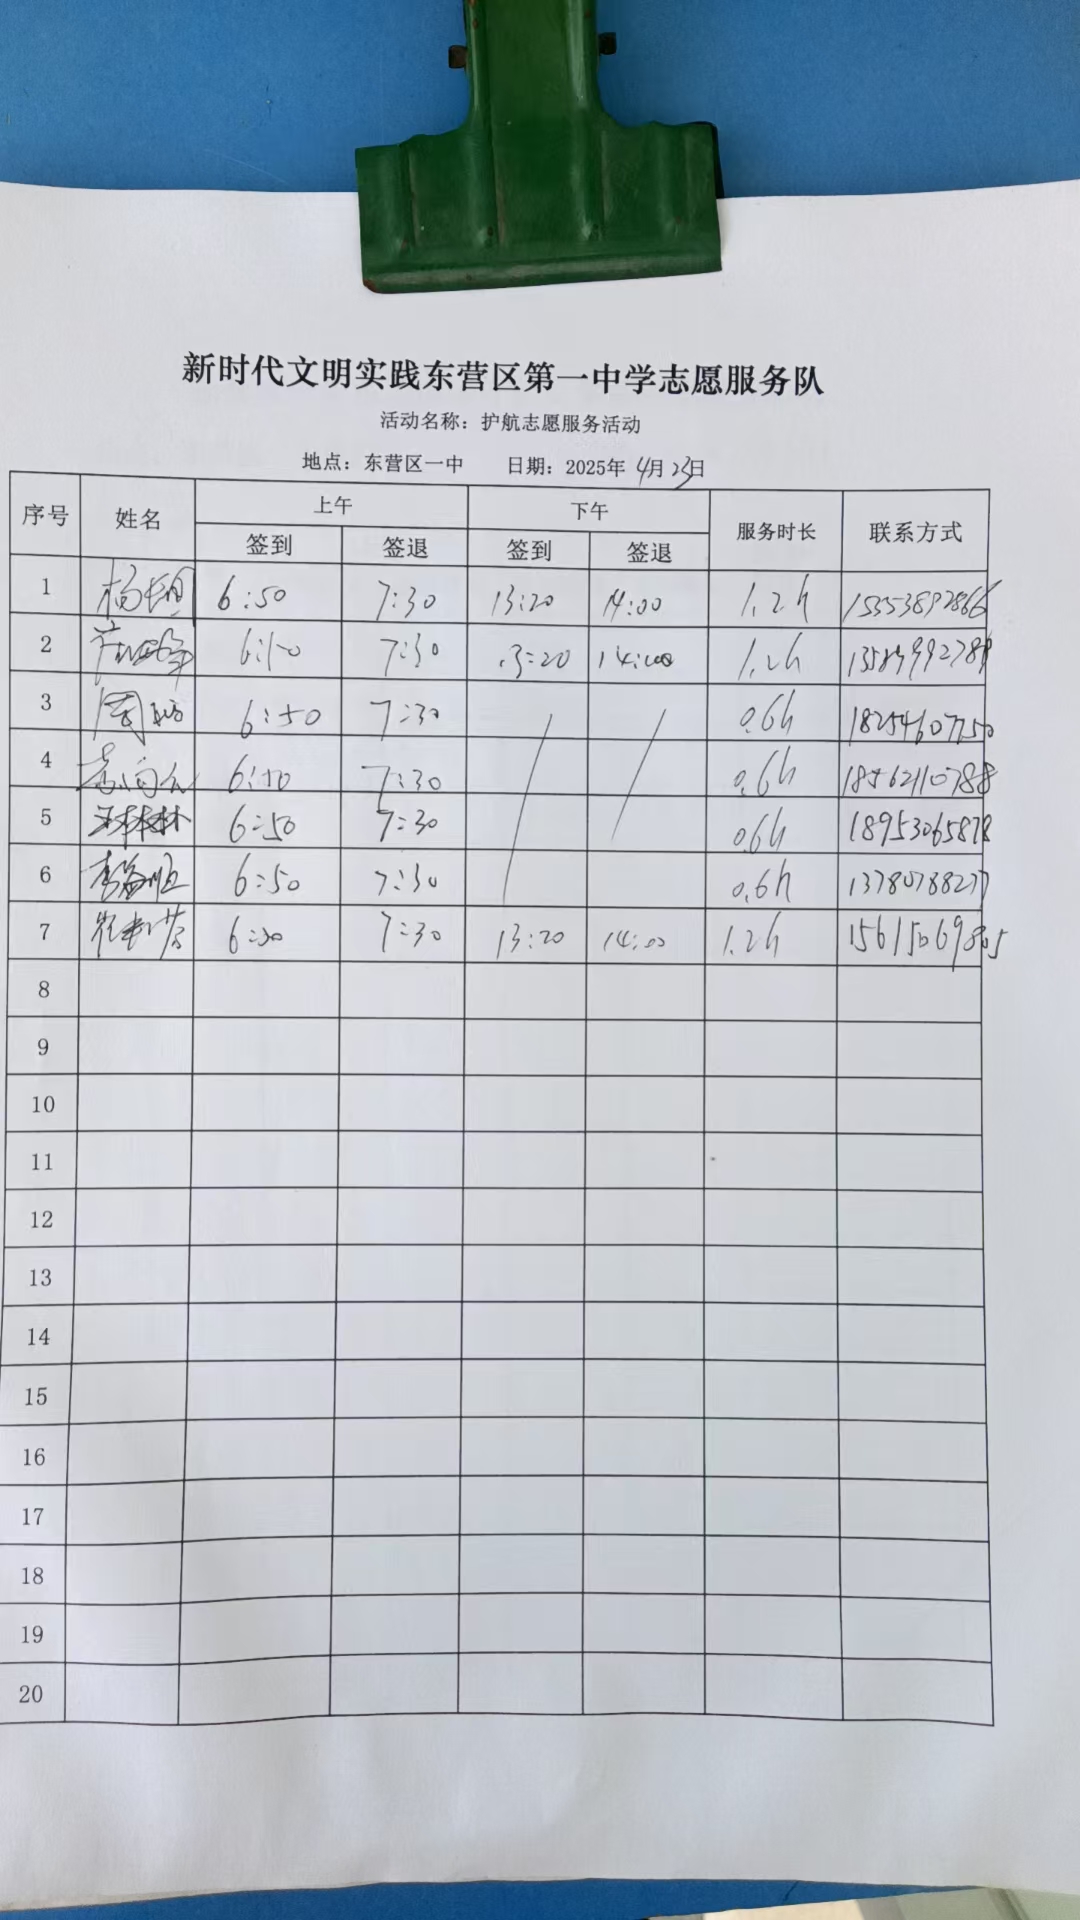 新时代文明实践东营区第一中学志愿服务队
活动名称：护航志愿服务活动
地点：东营区一中 日期：2025年 4月 23日
序号 姓名 上午 下午 服务时长 联系方式
签到 签退 签到 签退
1 6:50 7:30 13:20 14:00 1.2h 15553892866
2 6:50 7:30 13:20 14:00 1.2h
3 周 6:50 7:30 0.6h 18254607750
4 6:50 7:30 0.6h 18562110788
5 王林林 6:50 7:30 0.6h 18953065878
6 6:50 7:30 0.6h 13780788277
7 6:50 7:30 13:20 14:00 1.2h 15615069805
8
9
10
11
12
13
14
15
16
17
18
19
20